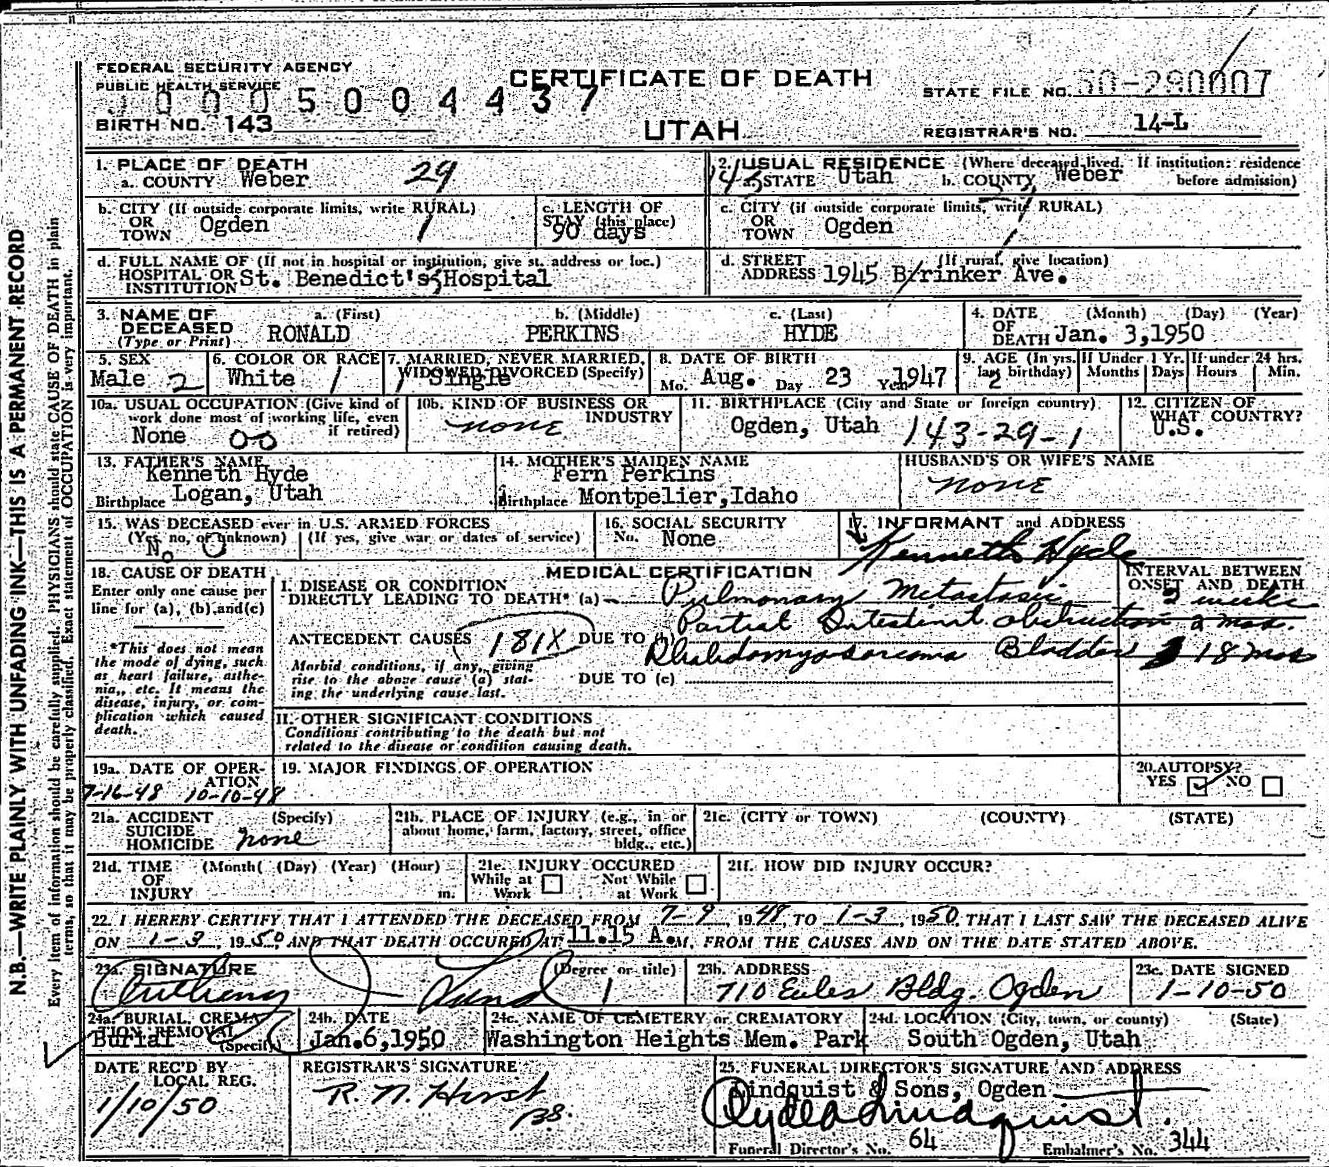 FEDERAL SECURITY AGENCY
PUBLIC HEALTH SERVICE
CERTIFICATE OF DEATH
STATE FILE NO. 50-290007
10005004437
BIRTH NO. 143
UTAH
REGISTRAR'S NO. 14-L
1. PLACE OF DEATH
a. COUNTY Weber 29
2. USUAL RESIDENCE (Where deceased lived. If institution: residence before admission)
143 a. STATE Utah b. COUNTY Weber
b. CITY (If outside corporate limits, write RURAL)
OR TOWN Ogden 1
c. LENGTH OF STAY (this place)
90 days
c. CITY (if outside corporate limits, write RURAL)
OR TOWN Ogden
d. FULL NAME OF (If not in hospital or institution, give st. address or loc.)
HOSPITAL OR INSTITUTION St. Benedict's Hospital
d. STREET ADDRESS (If rural, give location)
1945 Brinker Ave.
3. NAME OF DECEASED (Type or Print)
a. (First) b. (Middle) c. (Last)
RONALD PERKINS HYDE
4. DATE OF DEATH (Month) (Day) (Year)
Jan. 3,1950
5. SEX
Male 2
6. COLOR OR RACE
White 1
7. MARRIED, NEVER MARRIED, WIDOWED DIVORCED (Specify)
1 Single
8. DATE OF BIRTH
Mo. Aug. Day 23 Year 1947
9. AGE (In yrs. last birthday)
2
If Under 1 Yr. Months Days
If under 24 hrs. Hours Min.
10a. USUAL OCCUPATION (Give kind of work done most of working life, even if retired)
None 00
10b. KIND OF BUSINESS OR INDUSTRY
none
11. BIRTHPLACE (City and State or foreign country)
Ogden, Utah 143-29-1
12. CITIZEN OF WHAT COUNTRY?
U.S.
13. FATHER'S NAME
Kenneth Hyde
Birthplace Logan, Utah
14. MOTHER'S MAIDEN NAME
Fern Perkins
Birthplace Montpelier,Idaho
HUSBAND'S OR WIFE'S NAME
none
15. WAS DECEASED ever in U.S. ARMED FORCES
(Yes, no, or unknown) (If yes, give war or dates of service)
No 0
16. SOCIAL SECURITY
No. None
17. INFORMANT and ADDRESS
Kenneth Hyde
18. CAUSE OF DEATH
Enter only one cause per line for (a), (b), and (c)
*This does not mean the mode of dying, such as heart failure, asthenia, etc. It means the disease, injury, or complication which caused death.
MEDICAL CERTIFICATION
INTERVAL BETWEEN ONSET AND DEATH
I. DISEASE OR CONDITION
DIRECTLY LEADING TO DEATH* (a) Pulmonary Metastasis 2 weeks
ANTECEDENT CAUSES 181X DUE TO (b) Partial Intestinal obstruction 2 mos.
Rhabdomyosarcoma Bladder 18 mos
Morbid conditions, if any, giving rise to the above cause (a) stating the underlying cause last.
DUE TO (c)
II. OTHER SIGNIFICANT CONDITIONS
Conditions contributing to the death but not related to the disease or condition causing death.
19a. DATE OF OPERATION
7-16-48 10-10-48
19. MAJOR FINDINGS OF OPERATION
20. AUTOPSY?
YES NO
21a. ACCIDENT SUICIDE HOMICIDE (Specify)
none
21b. PLACE OF INJURY (e.g., in or about home, farm, factory, street, office bldg., etc.)
21c. (CITY or TOWN) (COUNTY) (STATE)
21d. TIME OF INJURY (Month( (Day) (Year) (Hour) m.
21e. INJURY OCCURED
While at Work Not While at Work
21f. HOW DID INJURY OCCUR?
22. I HEREBY CERTIFY THAT I ATTENDED THE DECEASED FROM 7-9, 1948, TO 1-3, 1950, THAT I LAST SAW THE DECEASED ALIVE
ON 1-3, 1950 AND THAT DEATH OCCURED AT 11.15 A.M, FROM THE CAUSES AND ON THE DATE STATED ABOVE.
23a. SIGNATURE (Degree or title)
Lund
23b. ADDRESS
710 Eccles Bldg. Ogden
23c. DATE SIGNED
1-10-50
24a. BURIAL, CREMATION REMOVAL (Specify)
Burial
24b. DATE
Jan.6,1950
24c. NAME OF CEMETERY or CREMATORY
Washington Heights Mem. Park
24d. LOCATION (City, town, or county) (State)
South Ogden, Utah
DATE REC'D BY LOCAL REG.
1/10/50
REGISTRAR'S SIGNATURE
R. N. Hirst
25. FUNERAL DIRECTOR'S SIGNATURE AND ADDRESS
Lindquist & Sons, Ogden
Clyde Lindquist
Funeral Director's No. 64 Embalmer's No. 344
N.B.—WRITE PLAINLY WITH UNFADING INK—THIS IS A PERMANENT RECORD
Every item of information should be carefully supplied. PHYSICIANS should state CAUSE OF DEATH in plain
terms, so that it may be properly classified. Exact statement of OCCUPATION is very important.